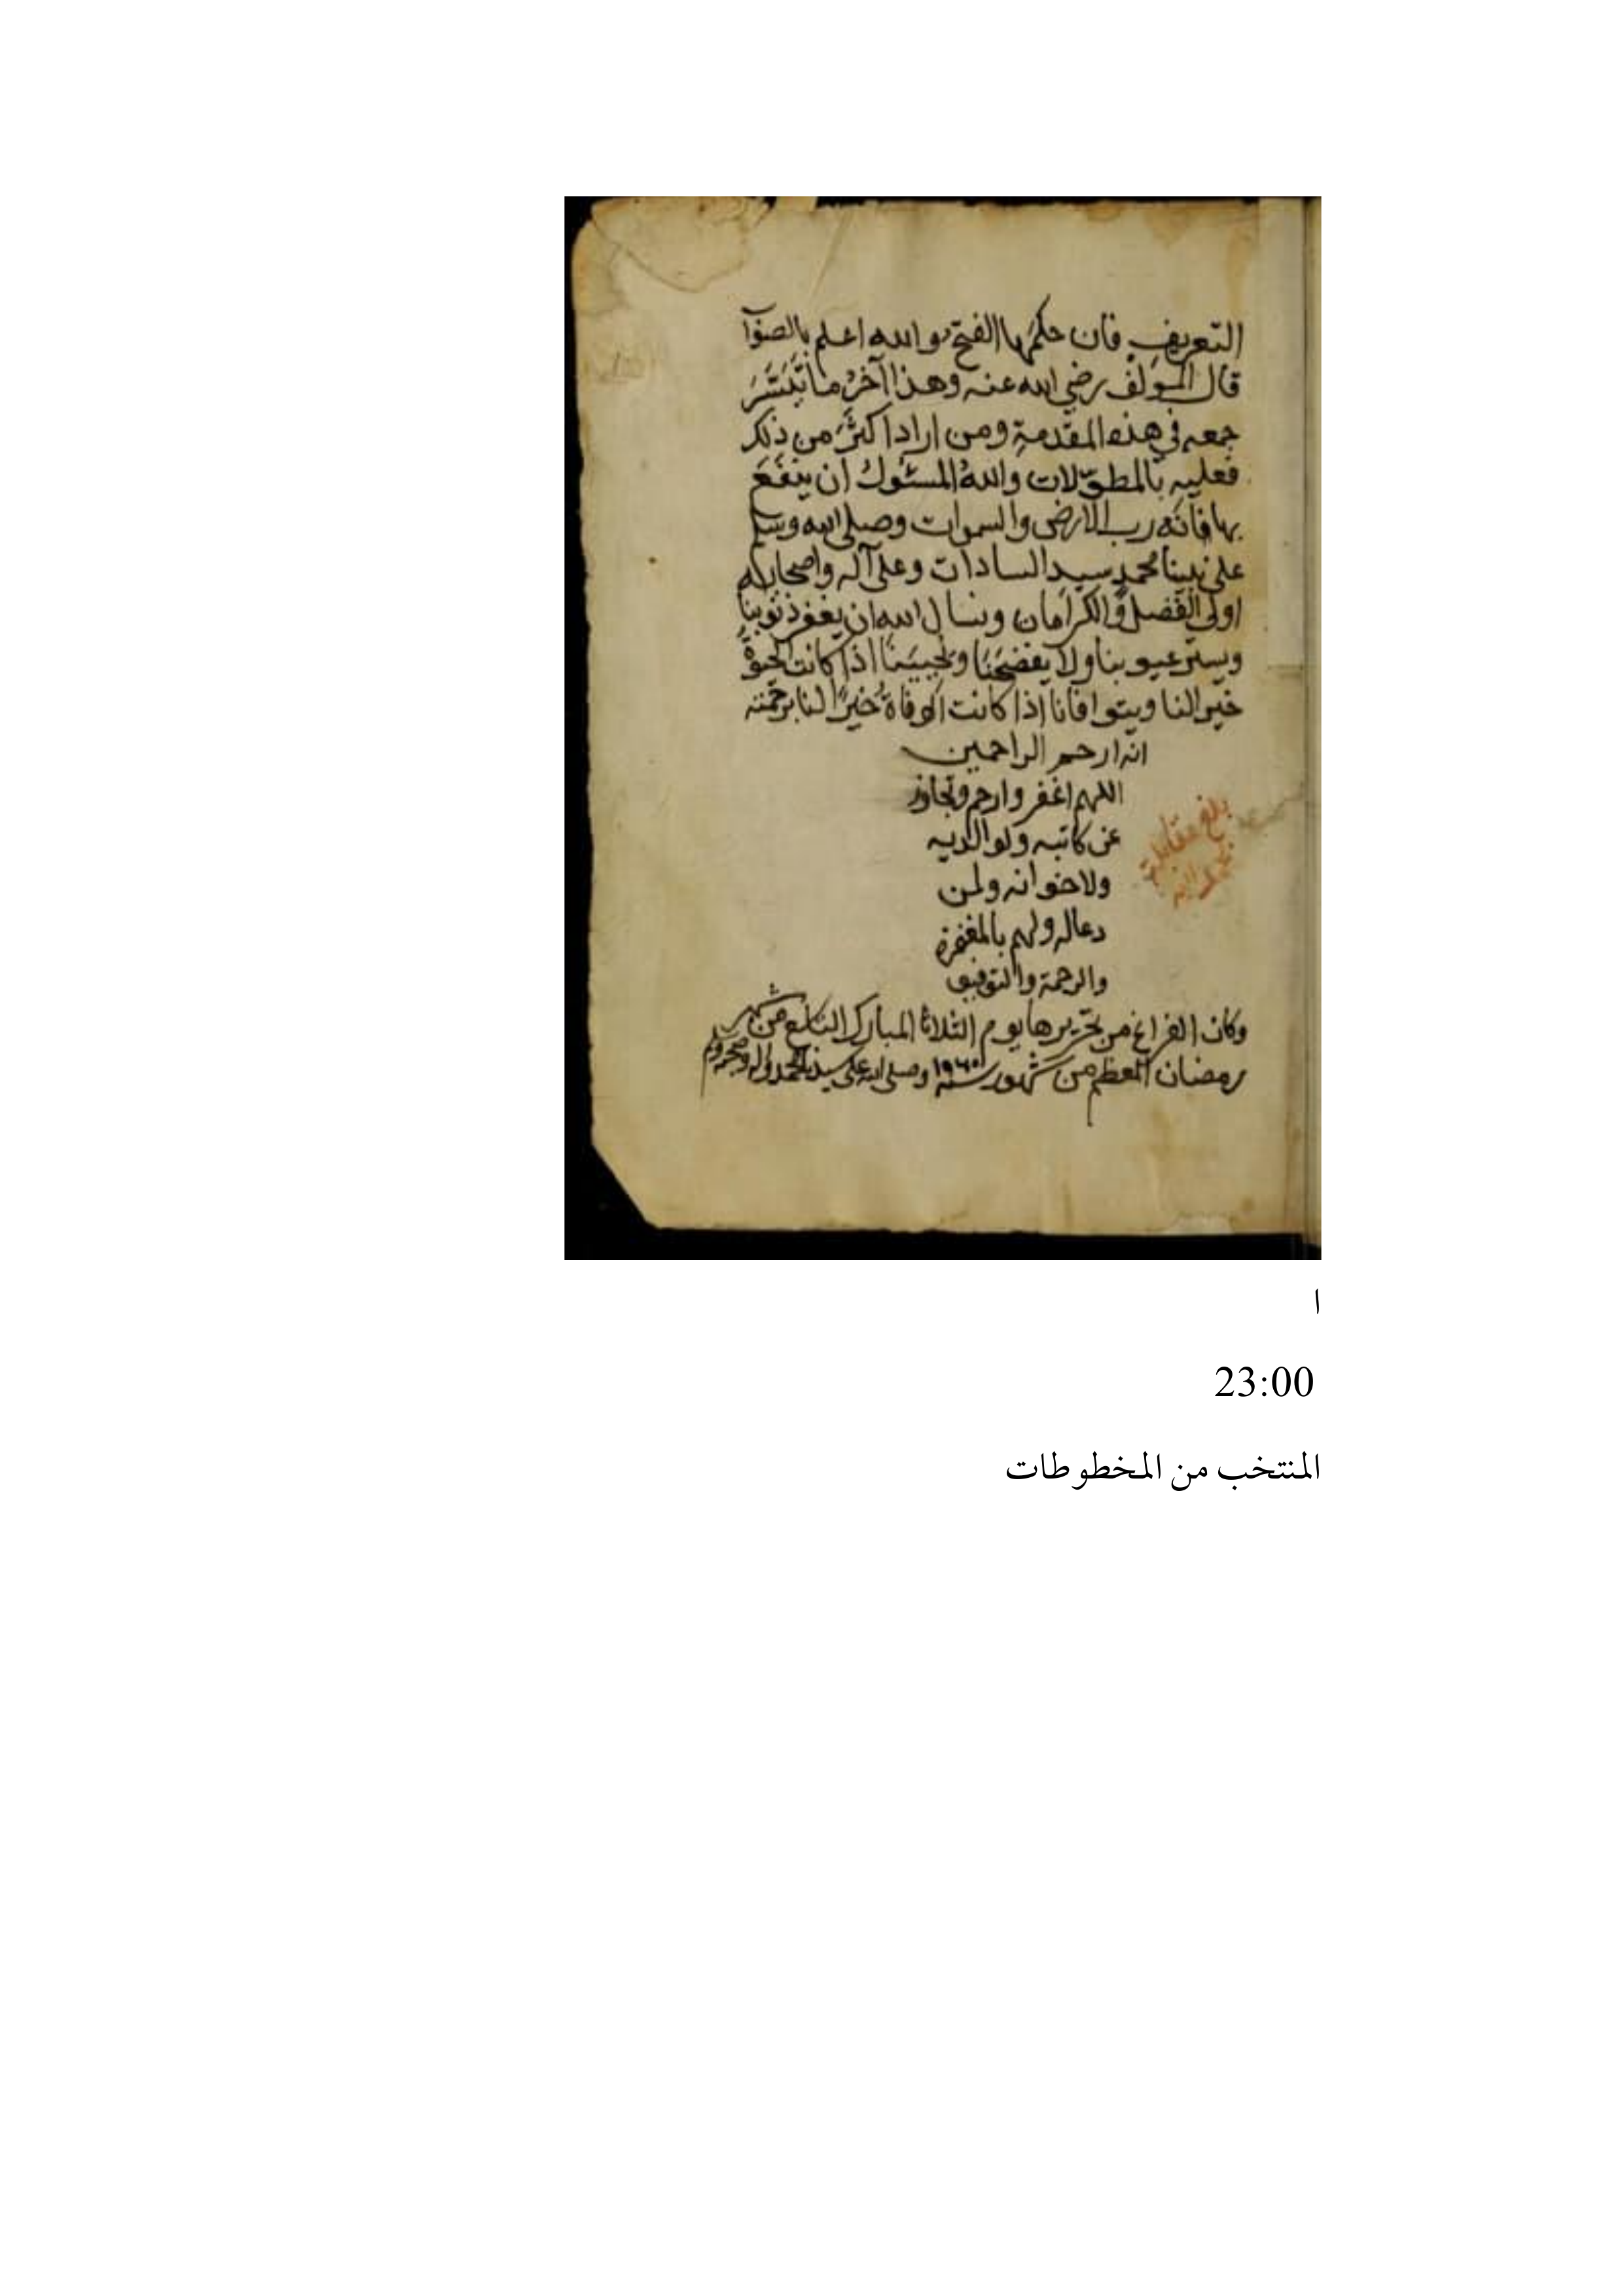 التعريف فان حكمها الفتح والله اعلم بالصوآ
قال المؤلف رضي الله عنه وهذا آخر ما تيَسَّرَ
جمعه في هذه المقدمة ومن اراد اكثر من ذلك
فعليه بالمطوّلات واللهُ المسئولُ ان ينفَعَ
بها فانه رب الارض والسموات وصلى الله وسلم
على نبينا محمد سيد السادات وعلى آله واصحابه
اولى الفضل والكرامات ونسال الله ان يغفر ذنوبنا
ويستر عيوبنا ولا يفضحَنَا ويحيينا اذا كانت الحيوةُ
خيرا لنا ويتوافانا اذا كانت الوفاةُ خيرًا لنا برحمته
انه ارحم الراحمين
اللهم اغفر وارحم وتجاوز
عن كاتبه ولوالديه
ولاخوانه ولمن
دعاله ولهم بالمغفرة
والرحمة والتوفيق
بلغ مقابلة
وكان الفراغ من تحريرها يوم الثلاثا المبارك التاسع من شهر
رمضان المعظم من شهور سنة وصلى الله على سيدنا محمد واله وصحبه وسلم
ا
23:00
المنتخب من المخطوطات